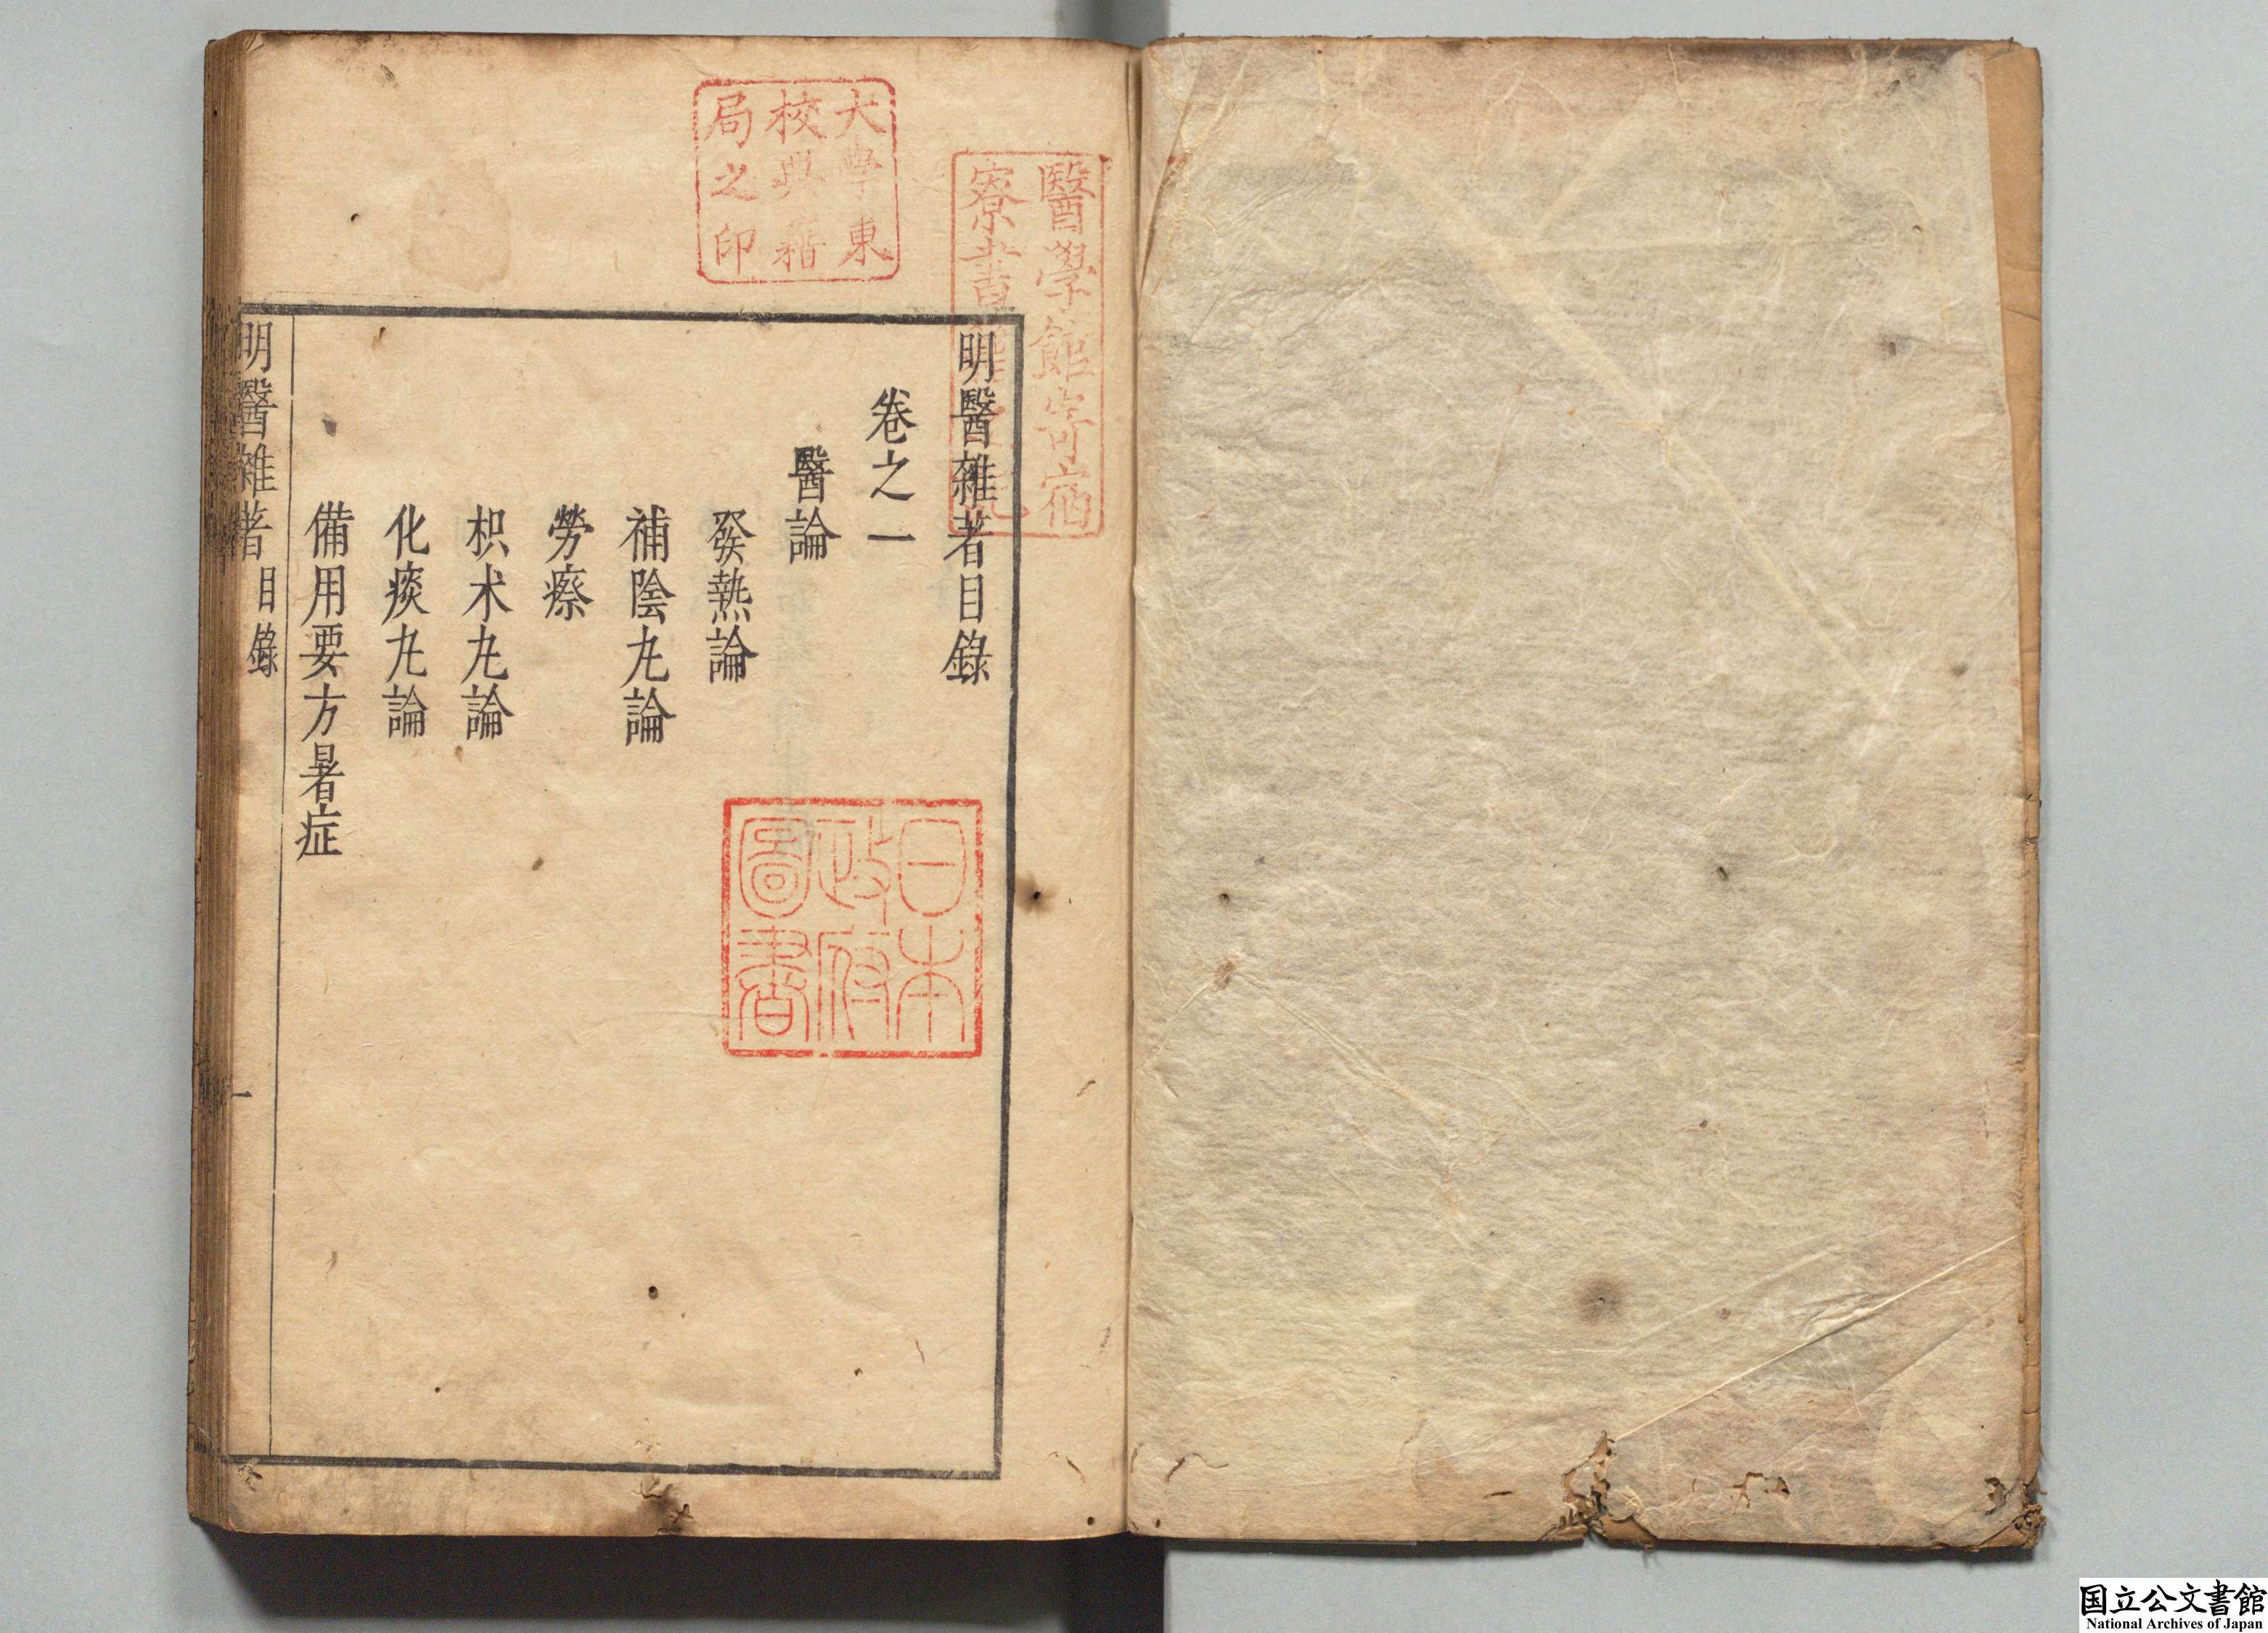 明醫雜著目錄
卷之一
醫論
發熱論
補陰丸論
勞瘵
枳朮丸論
化痰丸論
備用要方暑症
明醫雜著 目錄
一
醫學館寄宿
寮書
大學東
校典籍
局之印
日本
政府
圖書
国立公文書館
National Archives of Japan